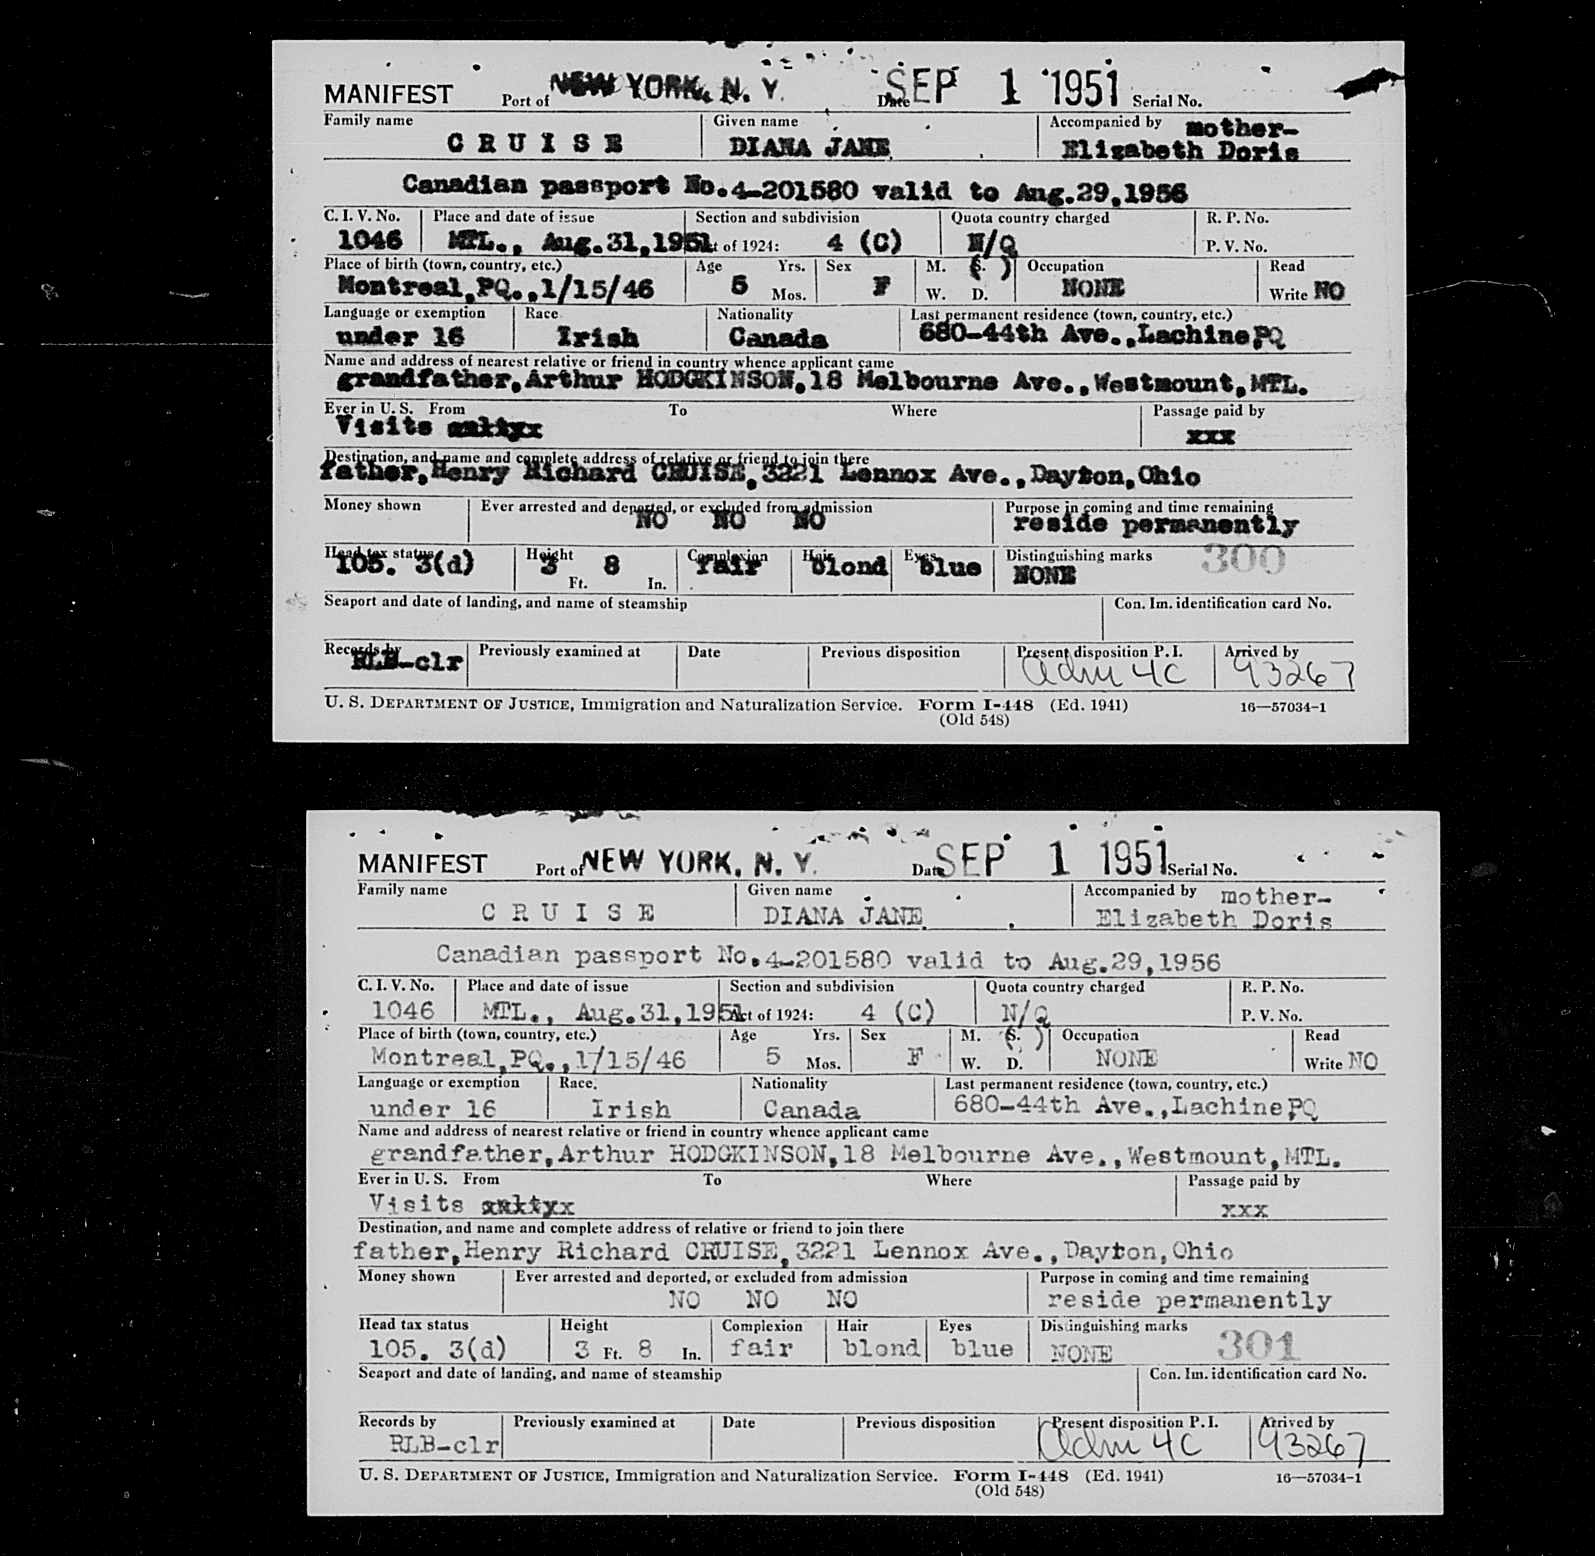 MANIFEST Port of NEW YORK, N. Y. Date SEP 1 1951 Serial No.
Family name Given name Accompanied by mother-
C R U I S E DIANA JANE. Elizabeth Doris
Canadian passport No.4-201580 valid to Aug.29,1956
C. I. V. No. Place and date of issue Section and subdivision Quota country charged R. P. No.
1046 MTL., Aug.31,1951 Act of 1924: 4 (C) N/Q P. V. No.
Place of birth (town, country, etc.) Age Yrs. Sex M. (S. ) Occupation Read
Montreal,PQ.,1/15/46 5 Mos. F W. D. NONE Write NO
Language or exemption Race Nationality Last permanent residence (town, country, etc.)
under 16 Irish Canada 680-44th Ave.,Lachine,PQ
Name and address of nearest relative or friend in country whence applicant came
grandfather,Arthur HODGKINSON,18 Melbourne Ave.,Westmount,MTL.
Ever in U. S. From To Where Passage paid by
Visits xxx
Destination, and name and complete address of relative or friend to join there
father,Henry Richard CRUISE,3221 Lennox Ave.,Dayton,Ohio
Money shown Ever arrested and deported, or excluded from admission Purpose in coming and time remaining
NO NO NO reside permanently
Head tax status Height Complexion Hair Eyes Distinguishing marks 300
105. 3(d) 3 Ft. 8 In. fair blond blue NONE
Seaport and date of landing, and name of steamship Con. Im. identification card No.
Records by Previously examined at Date Previous disposition Present disposition P. I. Arrived by
RLB-clr Adm 4C 93267
U. S. DEPARTMENT OF JUSTICE, Immigration and Naturalization Service. Form I-448 (Ed. 1941) 16—57034-1
(Old 548)
MANIFEST Port of NEW YORK, N. Y. Date SEP 1 1951 Serial No.
Family name Given name Accompanied by mother-
C R U I S E DIANA JANE. Elizabeth Doris
Canadian passport No.4-201580 valid to Aug.29,1956
C. I. V. No. Place and date of issue Section and subdivision Quota country charged R. P. No.
1046 MTL., Aug.31,1951 Act of 1924: 4 (C) N/Q P. V. No.
Place of birth (town, country, etc.) Age Yrs. Sex M. (S. ) Occupation Read
Montreal,PQ.,1/15/46 5 Mos. F W. D. NONE Write NO
Language or exemption Race. Nationality Last permanent residence (town, country, etc.)
under 16 Irish Canada 680-44th Ave.,Lachine,PQ
Name and address of nearest relative or friend in country whence applicant came
grandfather,Arthur HODGKINSON,18 Melbourne Ave.,Westmount,MTL.
Ever in U. S. From To Where Passage paid by
Visits xxx
Destination, and name and complete address of relative or friend to join there
father,Henry Richard CRUISE,3221 Lennox Ave.,Dayton,Ohio
Money shown Ever arrested and deported, or excluded from admission Purpose in coming and time remaining
NO NO NO reside permanently
Head tax status Height Complexion Hair Eyes Distinguishing marks 301
105. 3(d) 3 Ft. 8 In. fair blond blue NONE
Seaport and date of landing, and name of steamship Con. Im. identification card No.
Records by Previously examined at Date Previous disposition Present disposition P. I. Arrived by
RLB-clr Adm 4C 93267
U. S. DEPARTMENT OF JUSTICE, Immigration and Naturalization Service. Form I-448 (Ed. 1941) 16—57034-1
(Old 548)